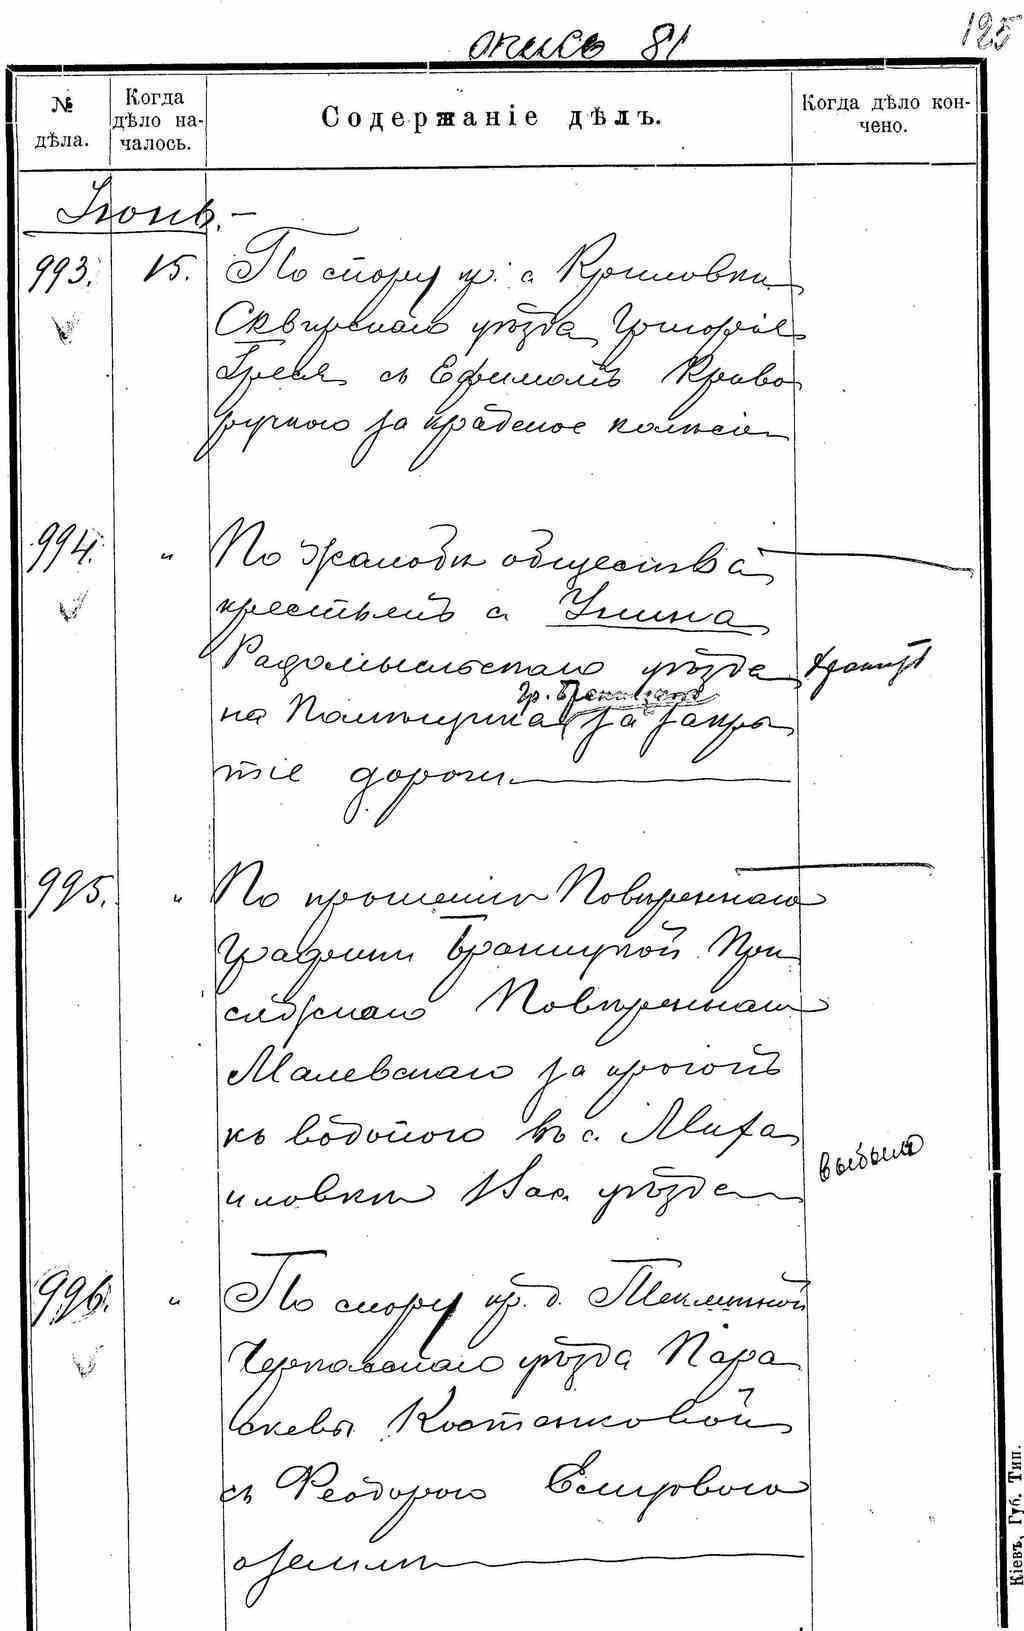 опись 81
125
№ дѣла.
Когда дѣло началось.
Содержаніе дѣлъ.
Когда дѣло кончено.
Іюнь.
993. 15. По спору кр. с. Крыловки
Сквирскаго уѣзда Григорія
съ Ефимомъ Криво
ручкою за
994. " По жалобѣ общества
крестьянъ с. Унина
Радомысльскаго уѣзда
гр. Браницкаго
на Помѣщика за закры
тіе дороги
995. " По прошенію Повѣреннаго
Графини Браницкой При
сяжнаго Повѣреннаго
Малевскаго за прогонъ
къ водопою въ с. Миха
йловкѣ Вас. уѣзда
выбыло
996. " По спору кр. д. Теклиной
Черкасскаго уѣзда Пара
скевы Костенковой
съ Феодорою
о землѣ
Кіевъ, Губ. Тип.